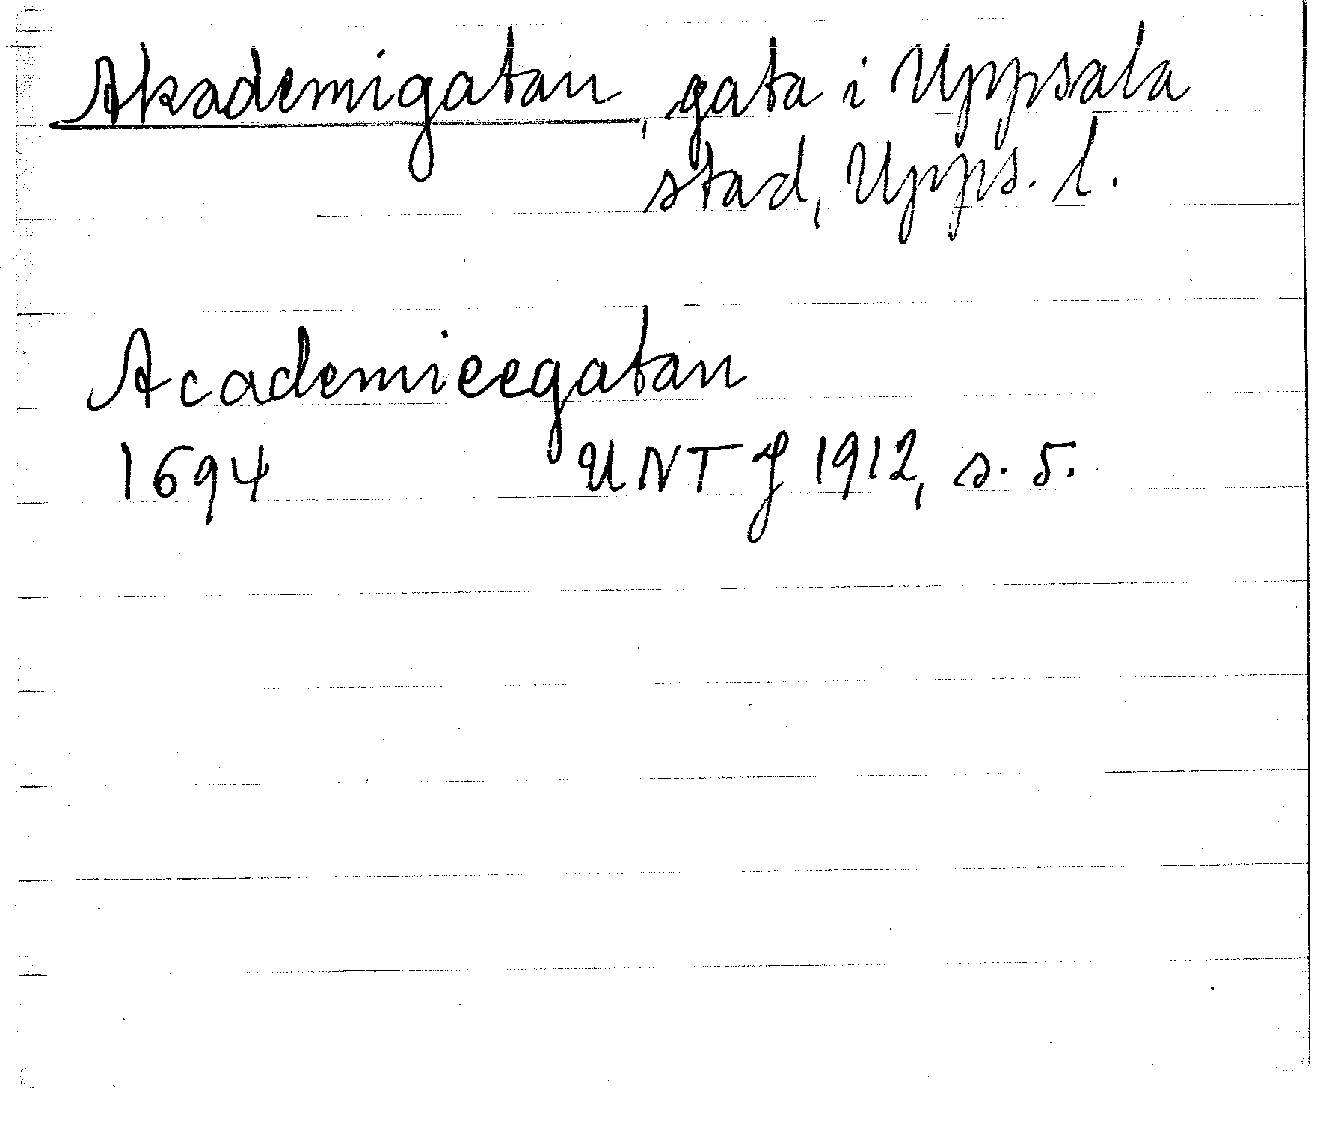 Akademigatan, gata i Uppsala
stad, Upps. l.
Academieegatan
1694 UNT J 1912, s. 5.